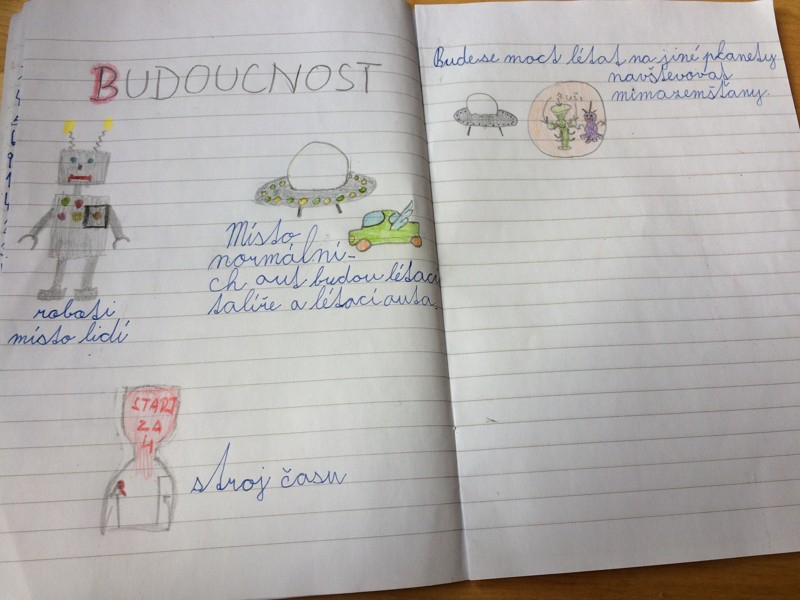 BUDOUCNOST
roboti
místo lidí
Místo
normální-
ch aut budou létací
talíře a létací auta.
START
ZA
4
stroj času
Bude se moct létat na jiné planety
navštěvovat
mimazemšťany.